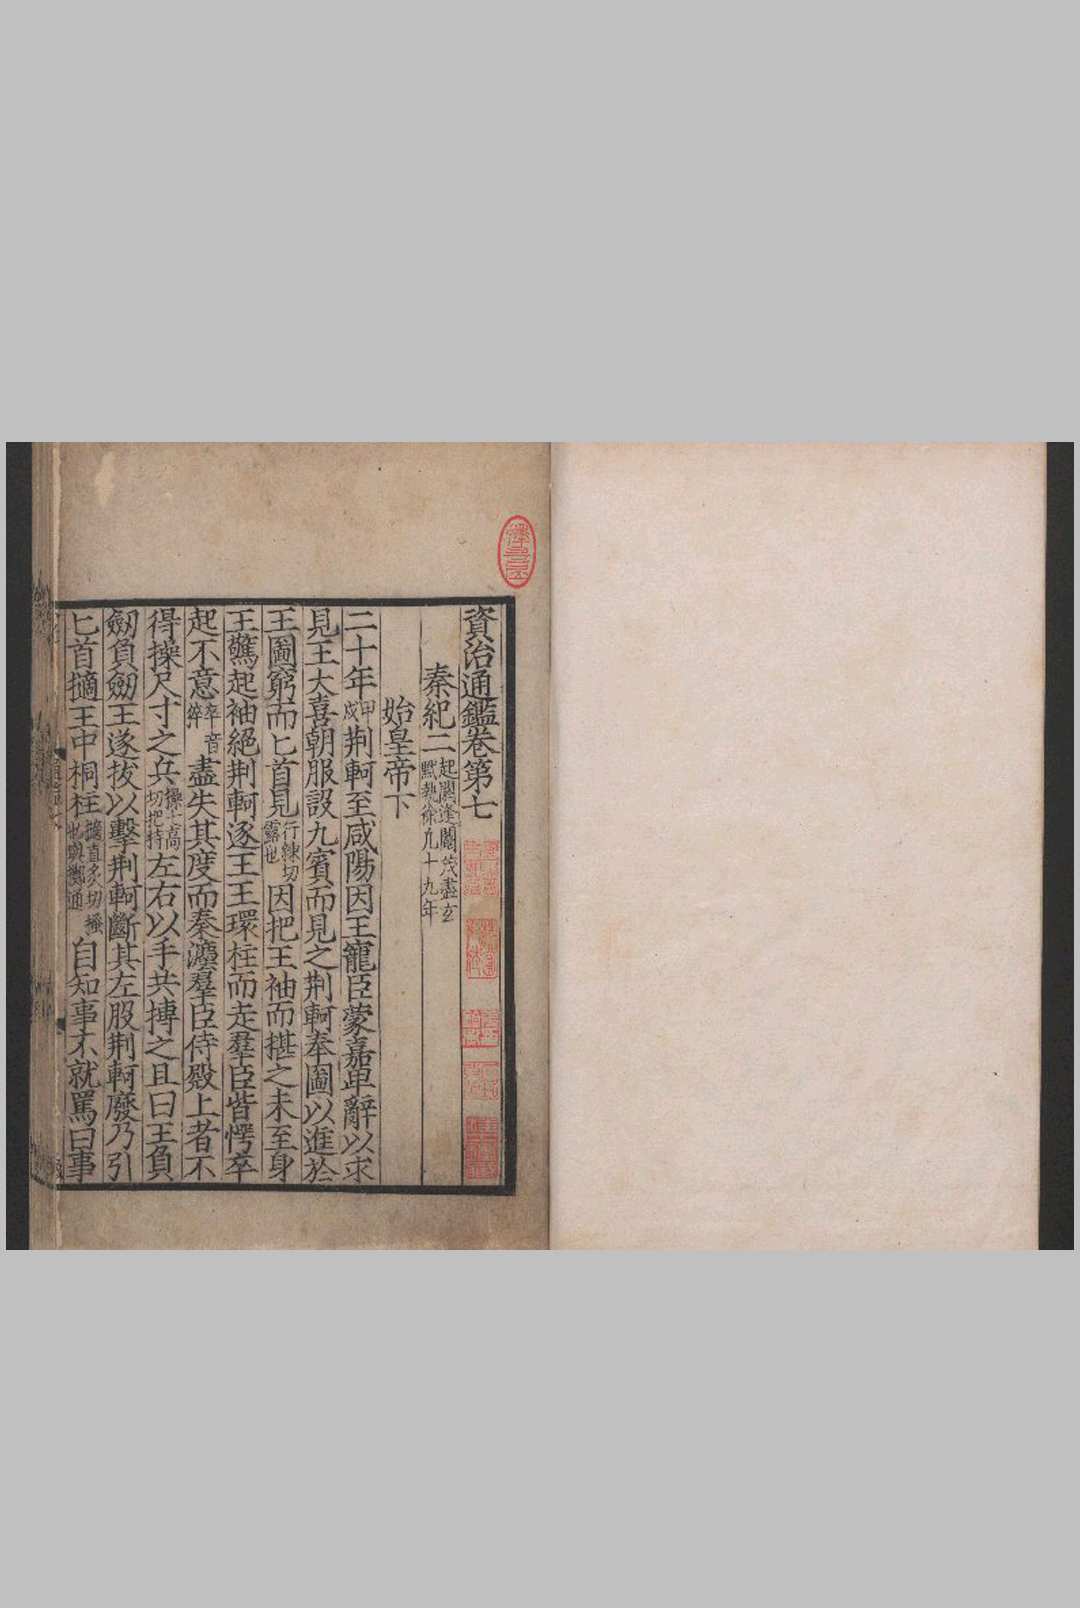 資治通鑑卷第七
秦紀二起閼逢閹茂盡玄黓執徐凡十九年
始皇帝下
二十年甲戌荆軻至咸陽因王寵臣蒙嘉卑辭以求
見王大喜朝服設九賓而見之荆軻奉圖以進於
王圖窮而匕首見行練切露也因把王袖而揕之未至身
王驚起袖絕荆軻逐王王環柱而走羣臣皆愕卒
起不意卒音猝盡失其度而秦灋羣臣侍殿上者不
得操尺寸之兵操七高切把持左右以手共搏之且曰王負
劒負劒王遂拔以擊荆軻斷其左股荆軻廢乃引
匕首擿王中桐柱擿直炙切搔也與擲通自知事不就罵曰事